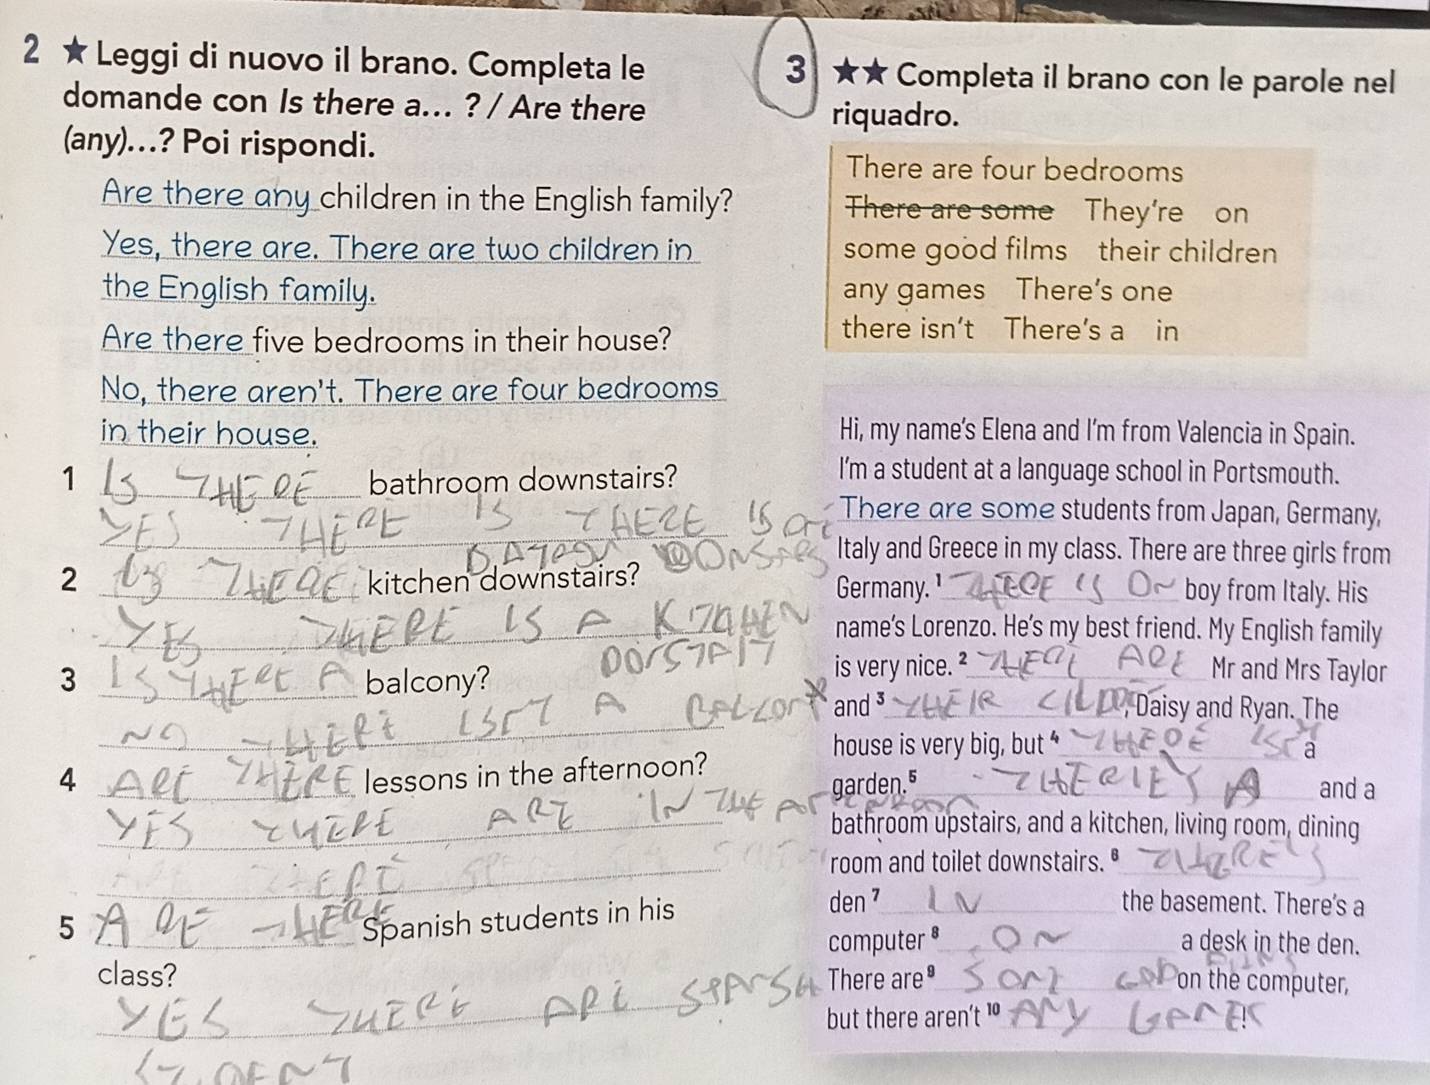 2 ★ Leggi di nuovo il brano. Completa le
domande con Is there a... ? / Are there
(any)...? Poi rispondi.
Are there any children in the English family?
Yes, there are. There are two children in
the English family.
Are there five bedrooms in their house?
No, there aren't. There are four bedrooms
in their house.
1 Is THERE bathroom downstairs?
YES THERE IS THERE IS
2 THERE kitchen downstairs?
YES THERE IS A
3 IS THERE A balcony?
NO THERE A
4 ARE THERE lessons in the afternoon?
YES THERE ARE IN THE
THERE
5 ARE THERE Spanish students in his
class?
YES THERE ARE
3 ★★ Completa il brano con le parole nel
riquadro.
There are four bedrooms
There are some They're on
some good films their children
any games There's one
there isn't There's a in
Hi, my name's Elena and I'm from Valencia in Spain.
I'm a student at a language school in Portsmouth.
There are some students from Japan, Germany,
Italy and Greece in my class. There are three girls from
Germany. 1 THERE IS On boy from Italy. His
name's Lorenzo. He's my best friend. My English family
is very nice. 2 THERE ARE Mr and Mrs Taylor
and 3 THEIR , Daisy and Ryan. The
house is very big, but 4 a
garden. 5 A and a
bathroom upstairs, and a kitchen, living room, dining
room and toilet downstairs. 6
den 7 IN the basement. There's a
computer 8 ON a desk in the den.
There are 9 on the computer,
but there aren't 10 ANY !